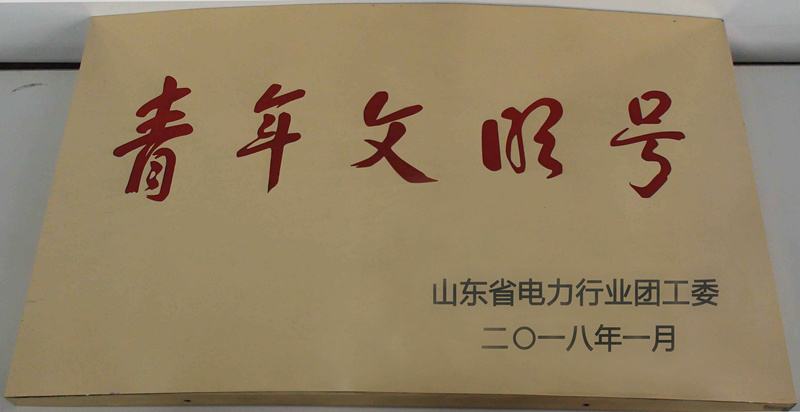 青年文明号
山东省电力行业团工委
二〇一八年一月